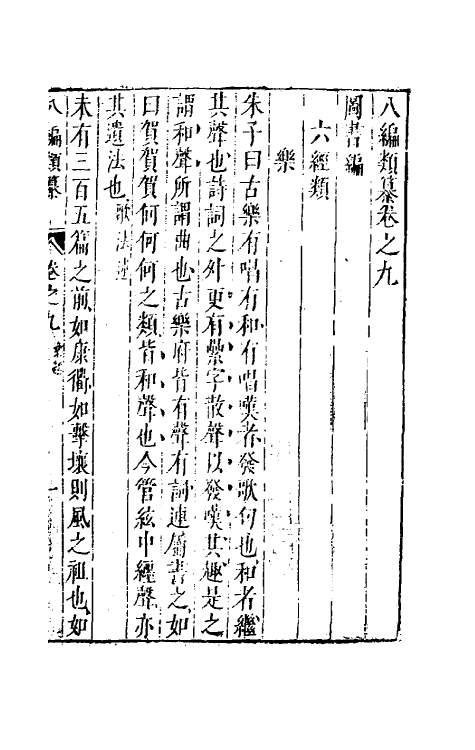 八編類纂卷之九
圖書編
六經類
樂
朱子曰古樂有唱有和有唱嘆者發歌句也和者繼
其聲也詩詞之外更有疊字散聲以發嘆其趣是之
謂和聲所謂曲也古樂府皆有聲有詞連屬書之如
曰賀賀賀何何何之類皆和聲也今管絃中纏聲亦
其遺法也歌法述
未有三百五篇之前如康衢如擊壤則風之祖也如
八編類纂 卷之九